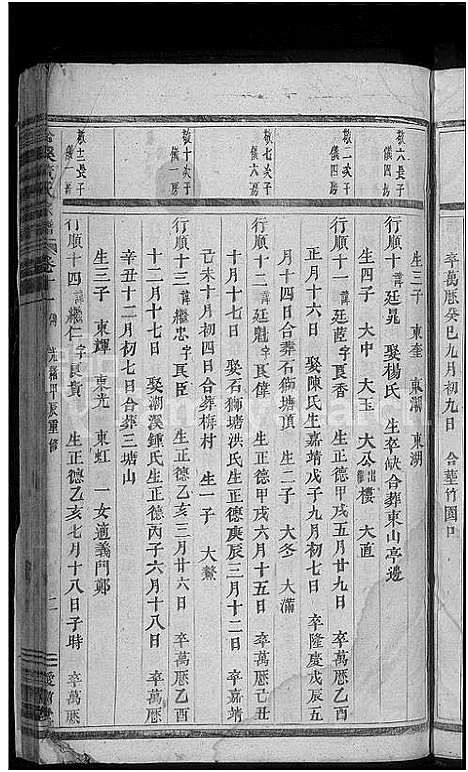 卒萬曆癸巳九月初九日 合塟竹園口
生三子 東奎 東瀛 東湖
敬六長子
儀四房
行順十諱廷晁 娶楊氏 生卒缺合葬東山亭邊
生四子 大中 大玉 大公出繼樓 大直
敬一次子
儀四房
行順十一諱廷莅字良香 生正德甲戌五月廿九日 卒萬曆乙酉
正月十六日 娶陳氏生嘉靖戊子九月初七日 卒隆慶戊辰五
月十四日合葬石獅塘頂 生二子 大冬 大滿
敬七次子
儀六房
行順十二諱廷魁字良偉 生正德甲戌六月十三日 卒萬曆己丑
十月十七日 娶石獅塘洪氏生正德庚辰三月十二日 卒嘉靖
己未十月初四日合葬梅村 生一子 大鰲
敬十次子
儀一房
行順十三諱繼忠字良臣 生正德乙亥三月廿六日 卒萬曆乙酉
十二月十七日 娶潮溪鍾氏生正德丙子六月十八日 卒萬曆
辛丑十二月初七日合葬三塘山
生三子 東輝 東光 東虹 一女適義門鄭
敬十二長子
儀一房
行順十四諱繼仁字良貴 生正德乙亥七月十八日子時 卒萬曆
光緒甲辰重修
二